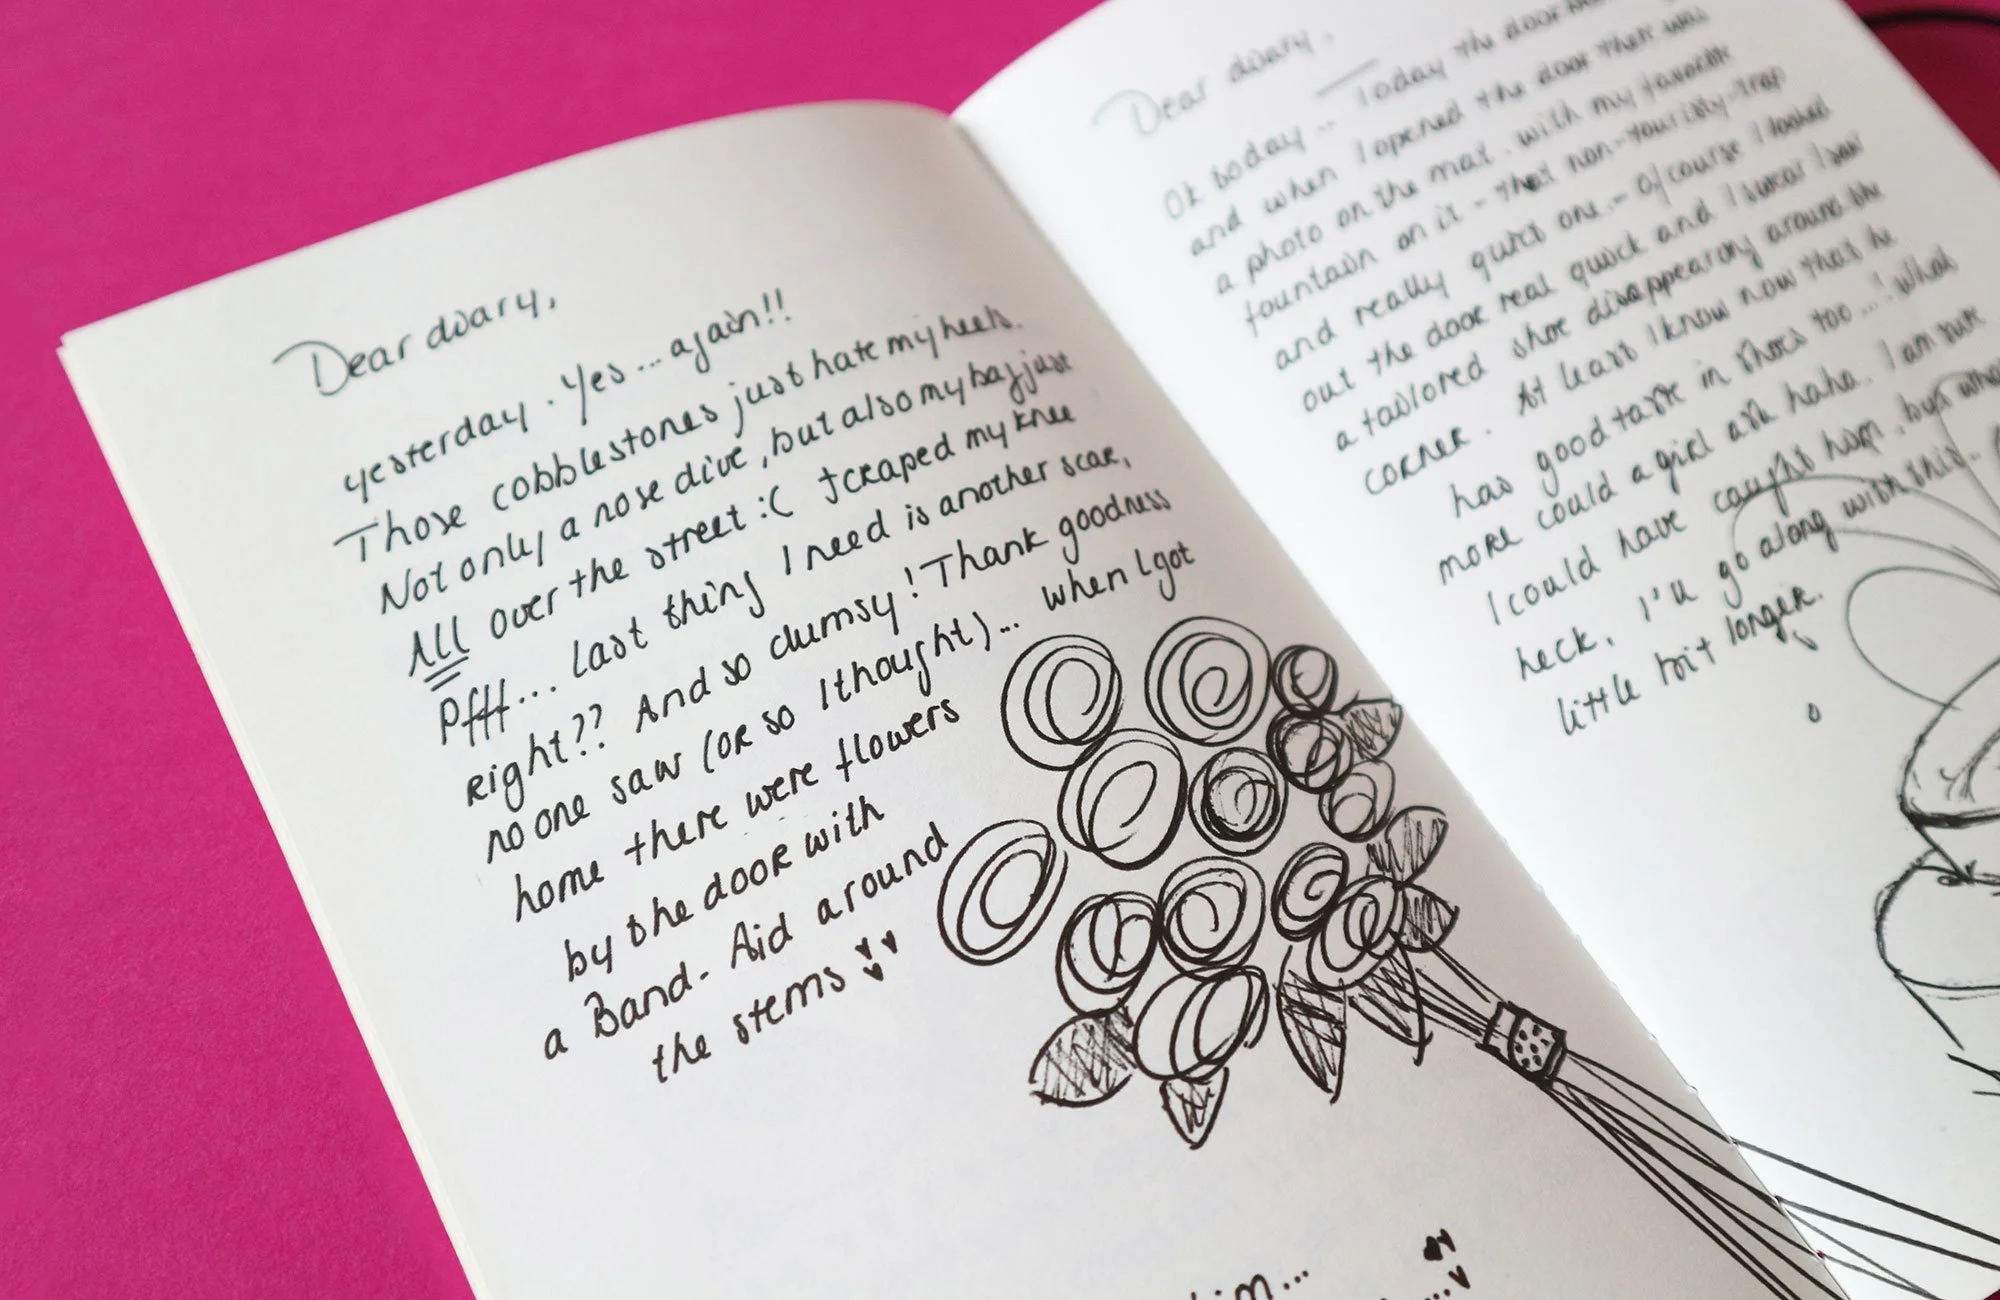 Dear diary,
yesterday. Yes... again!!
Those cobblestones just hate my heels.
Not only a nose dive, but also my bag just
All over the street :( Scraped my knee
Pfff... last thing I need is another scar,
right?? And so clumsy! Thank goodness
no one saw (or so I thought)... when I got
home there were flowers
by the door with
a Band-Aid around
the stems
him...
Dear diary,
Ok today... Today the door
and when I opened the door there was
a photo on the mat. with my favorite
fountain on it - that non-touristy-trap
and really quiet one. - Of course I looked
out the door real quick and I swear I saw
a tailored shoe disappearing around the
corner. At least I know now that he
has good taste in shoes too...! What
more could a girl ask haha. I am sure
I could have caught him, but what
heck, I'll go along with this..
little bit longer.